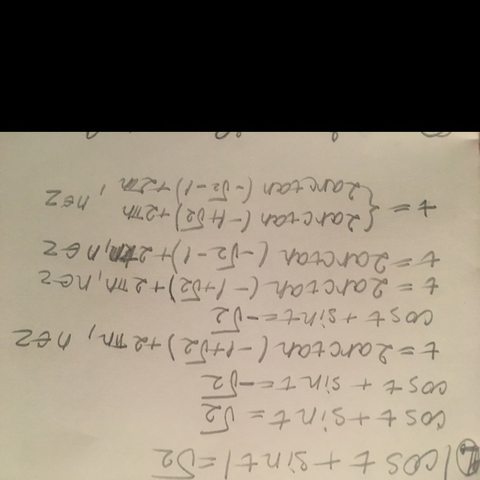 2) |cos t + sin t| = √2
cos t + sin t = √2
cos t + sin t = -√2
t = 2arctan (-1+√2) + 2πn, n∈Z
cos t + sin t = -√2
t = 2arctan (-1+√2) + 2πn, n∈Z
t = 2arctan (-√2-1) + 2πn, n∈Z
t = { 2arctan (-1+√2) + 2πn
2arctan (-√2-1) + 2πn, n∈Z